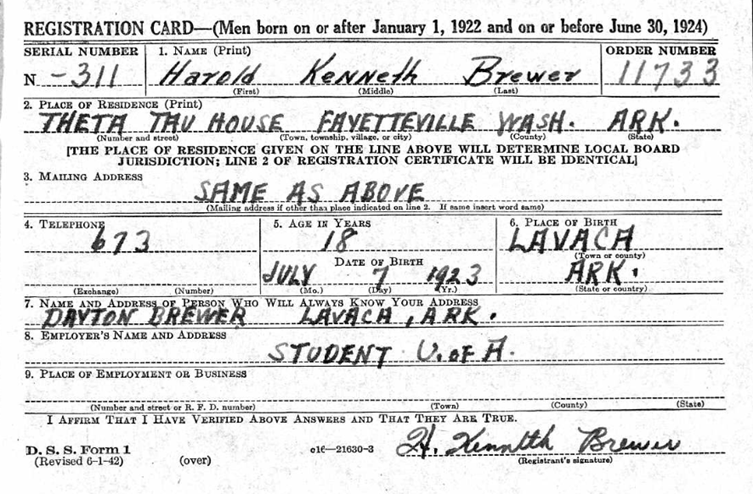 REGISTRATION CARD—(Men born on or after January 1, 1922 and on or before June 30, 1924)
SERIAL NUMBER 1. NAME (Print) ORDER NUMBER
N -311 Harold Kenneth Brewer 11733
(First) (Middle) (Last)
2. PLACE OF RESIDENCE (Print)
THETA TAU HOUSE FAYETTEVILLE WASH. ARK.
(Number and street) (Town, township, village, or city) (County) (State)
[THE PLACE OF RESIDENCE GIVEN ON THE LINE ABOVE WILL DETERMINE LOCAL BOARD
JURISDICTION; LINE 2 OF REGISTRATION CERTIFICATE WILL BE IDENTICAL]
3. MAILING ADDRESS
SAME AS ABOVE
(Mailing address if other than place indicated on line 2. If same insert word same)
4. TELEPHONE 5. AGE IN YEARS 6. PLACE OF BIRTH
673 18 LAVACA
DATE OF BIRTH (Town or county)
JULY 7 1923 ARK.
(Exchange) (Number) (Mo.) (Day) (Yr.) (State or country)
7. NAME AND ADDRESS OF PERSON WHO WILL ALWAYS KNOW YOUR ADDRESS
DAYTON BREWER LAVACA, ARK.
8. EMPLOYER'S NAME AND ADDRESS
STUDENT U. OF A.
9. PLACE OF EMPLOYMENT OR BUSINESS
(Number and street or R. F. D. number) (Town) (County) (State)
I AFFIRM THAT I HAVE VERIFIED ABOVE ANSWERS AND THAT THEY ARE TRUE.
D. S. S. Form 1 c16—21630-3 H. Kenneth Brewer
(Revised 6-1-42) (over) (Registrant's signature)